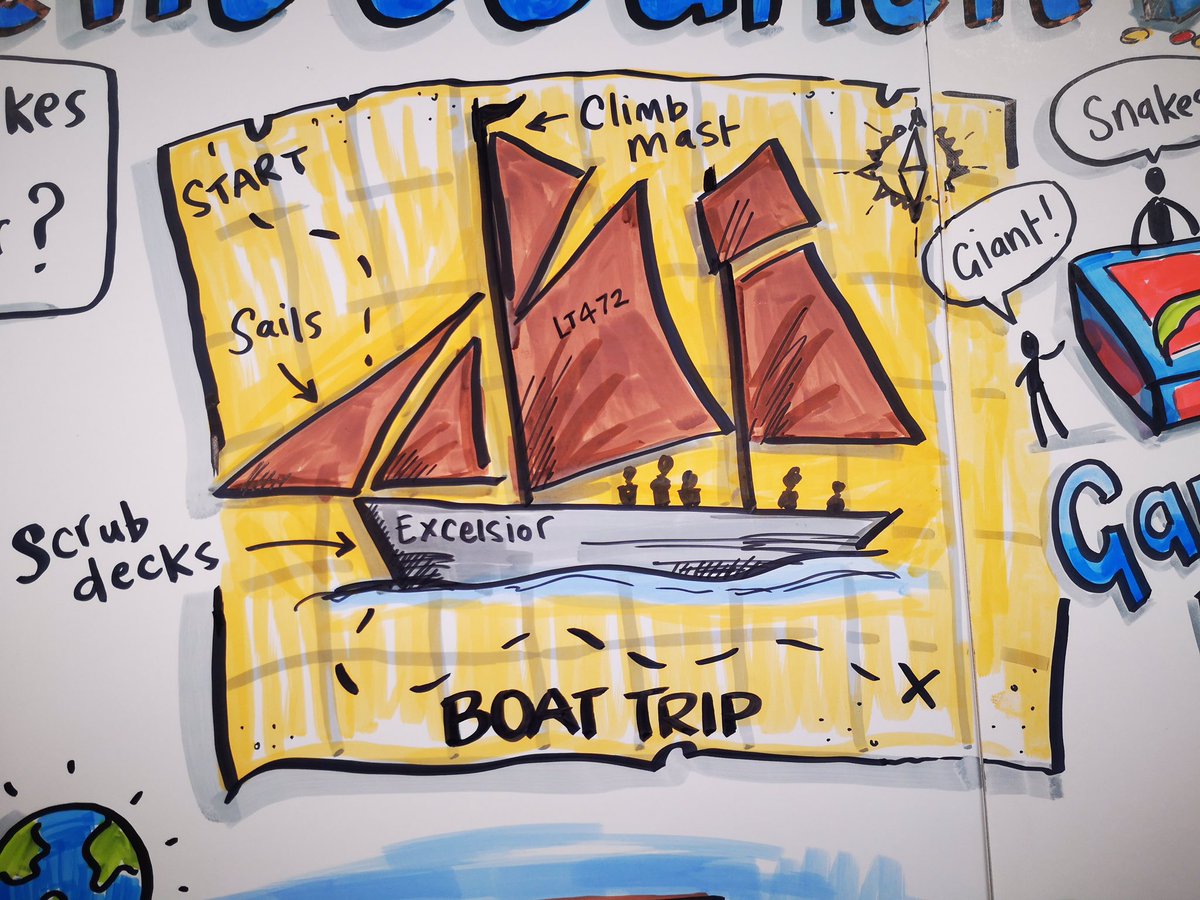 kes
?
START
Climb
mast
Snake
Giant!
Sails
LT472
Scrub
decks
Excelsior
Ga
BOAT TRIP
X